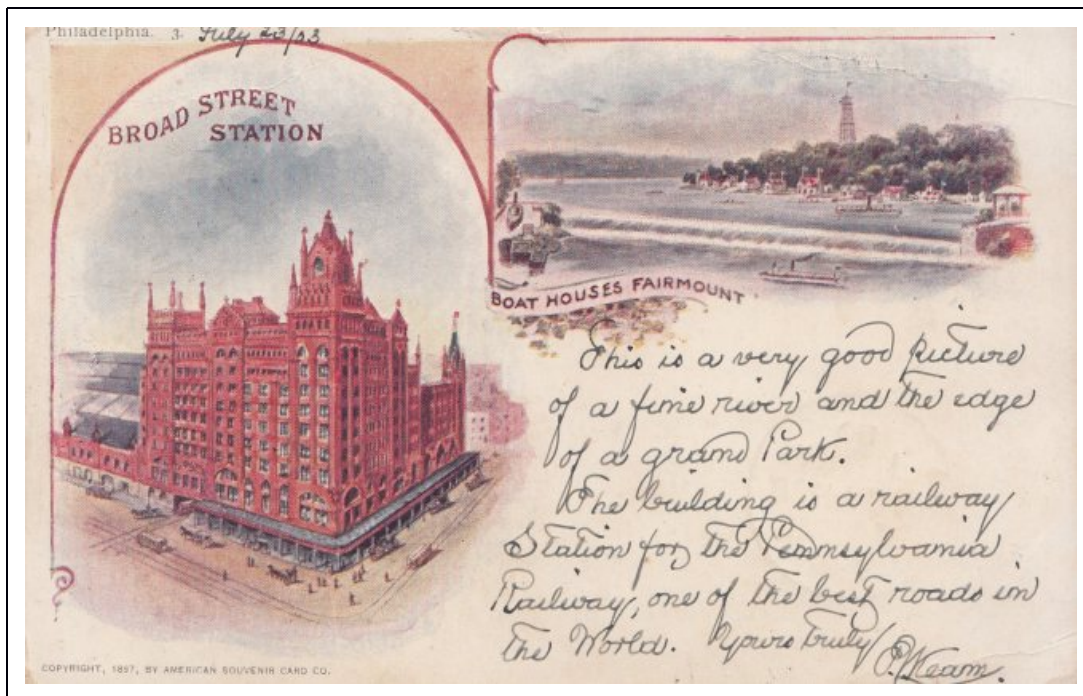 Philadelphia. 3. July 23/03
BROAD STREET
STATION
BOAT HOUSES FAIRMOUNT
This is a very good picture
of a fine river and the edge
of a grand Park.
The building is a railway
Station for the Pennsylvania
Railway, one of the best roads in
the World. Yours Truly
COPYRIGHT, 1897, BY AMERICAN SOUVENIR CARD CO.